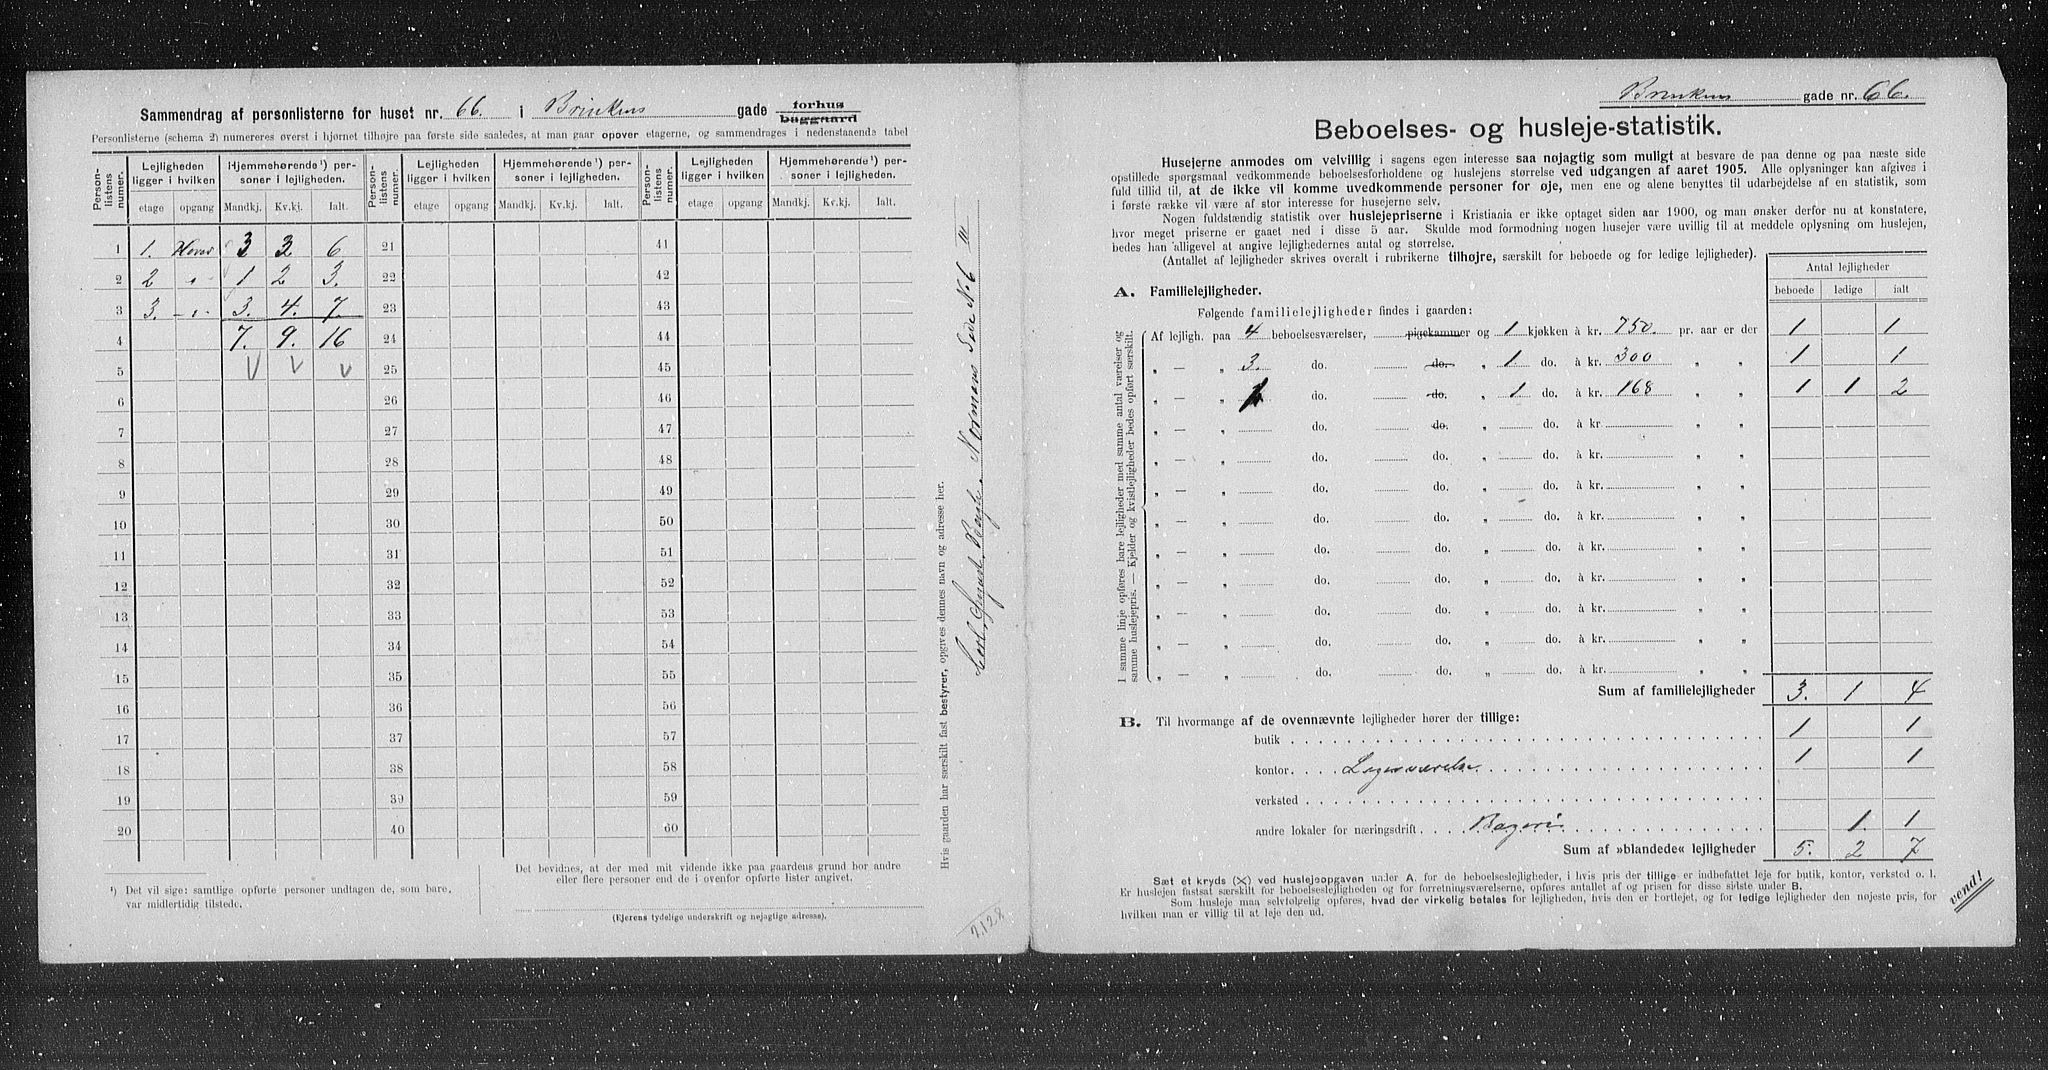 Sammendrag af personlisterne for huset nr. 66. i Brinkens gade forhus baggaard
Personlisterne (schema 2) numereres øverst i hjørnet tilhøjre paa første side saaledes, at man gaar opover etagerne, og sammendrages i nedenstaaende tabel
Person-listens numer. Lejligheden ligger i hvilken Hjemmehørende¹) personer i lejligheden. Person-listens numer. Lejligheden ligger i hvilken Hjemmehørende¹) personer i lejligheden. Person-listens numer. Lejligheden ligger i hvilken Hjemmehørende¹) personer i lejligheden.
etage opgang Mandkj. Kv.kj. Ialt. etage opgang Mandkj. Kv.kj. Ialt. etage opgang Mandkj. Kv.kj. Ialt.
1 1. 3 3 6 21 41
2 2 " 1 2 3. 22 42
3 3. -"- 3. 4. 7. 23 43
4 7. 9. 16 24 44
5 V V V 25 45
6 26 46
7 27 47
8 28 48
9 29 49
10 30 50
11 31 51
12 32 52
13 33 53
14 34 54
15 35 55
16 36 56
17 37 57
18 38 58
19 39 59
20 40 60
¹) Det vil sige: samtlige opførte personer undtagen de, som bare.
var midlertidig tilstede.
Det bevidnes, at der med mit vidende ikke paa gaardens grund bor andre
eller flere personer end de i ovenfor opførte lister angivet.
(Ejerens tydelige underskrift og nejagtige adresse).
Hvis gaarden har særskilt fast bestyrer, opgives dennes navn og adresse her.
Normans Gade N. 6
2128
Brinkens gade nr. 66.
Beboelses- og husleje-statistik.
Husejerne anmodes om velvillig i sagens egen interesse saa nøjagtig som muligt at besvare de paa denne og paa næste side
opstillede spørgsmaal vedkommende beboelsesforholdene og huslejens størrelse ved udgangen af aaret 1905. Alle oplysninger kan afgives i
fuld tillid til, at de ikke vil komme uvedkommende personer for øje, men ene og alene benyttes til udarbejdelse af en statistik, som
i første række vil være af stor interesse for husejerne selv.
Nogen fuldstændig statistik over huslejepriserne i Kristiania er ikke optaget siden aar 1900, og man ønsker derfor nu at konstatere,
hvor meget priserne er gaaet ned i disse 5 aar. Skulde mod formodning nogen husejer være uvillig til at meddele oplysning om huslejen,
bedes han alligevel at angive lejlighedernes antal og størrelse.
(Antallet af lejligheder skrives overalt i rubrikerne tilhøjre, særskilt for beboede og for ledige lejligheder).
Antal lejligheder
beboede ledige ialt
A. Familielejligheder.
Følgende familielejligheder findes i gaarden:
I samme linje opføres bare lejligheder med samme antal værelser og samme huslejepris. — Kjelder og kvistlejligheder bedes opført særskilt.
Af lejligh. paa 4 beboelsesværelser, pigekammer og 1 kjøkken à kr. 750. pr. aar er der 1 1
„ — „ 3. do. do. „ 1 do. à kr. 300 „ „ 1 1
„ — „ 1 do. do. „ 1 do. à kr. 168 „ „ 1 1 2
„ — „ do. do. „ do. à kr. „ „
„ — „ do. do. „ do. à kr. „ „
„ — „ do. do. „ do. à kr. „ „
„ — „ do. do. „ do. à kr. „ „
„ — „ do. do. „ do. à kr. „ „
„ — „ do. do. „ do. à kr. „ „
„ — „ do. do. „ do. à kr. „ „
„ — „ do. do. „ do. à kr. „ „
„ — „ do. do. „ do. à kr. „ „
Sum af familielejligheder 3. 1 4
B. Til hvormange af de ovennævnte lejligheder hører der tillige:
butik 1 1
kontor. Lagerværelse 1 1
verksted
andre lokaler for næringsdrift Bageri 1. 1
Sum af »blandede« lejligheder 5. 2 7
Sæt et kryds (X) ved huslejeopgaven under A. for de beboelseslejligheder, i hvis pris der tillige er indbefattet leje for butik, kontor, verksted o. l.
Er huslejen fastsat særskilt for beboelseslejligheden og for forretningsværelserne, opføres antallet af og prisen for disse sidste under B.
Som husleje maa selvfølgelig opføres, hvad der virkelig betales for lejligheden, hvis den er bortlejet, og for ledige lejligheder den nøjeste pris, for
hvilken man er villig til at leje den ud.
vend!